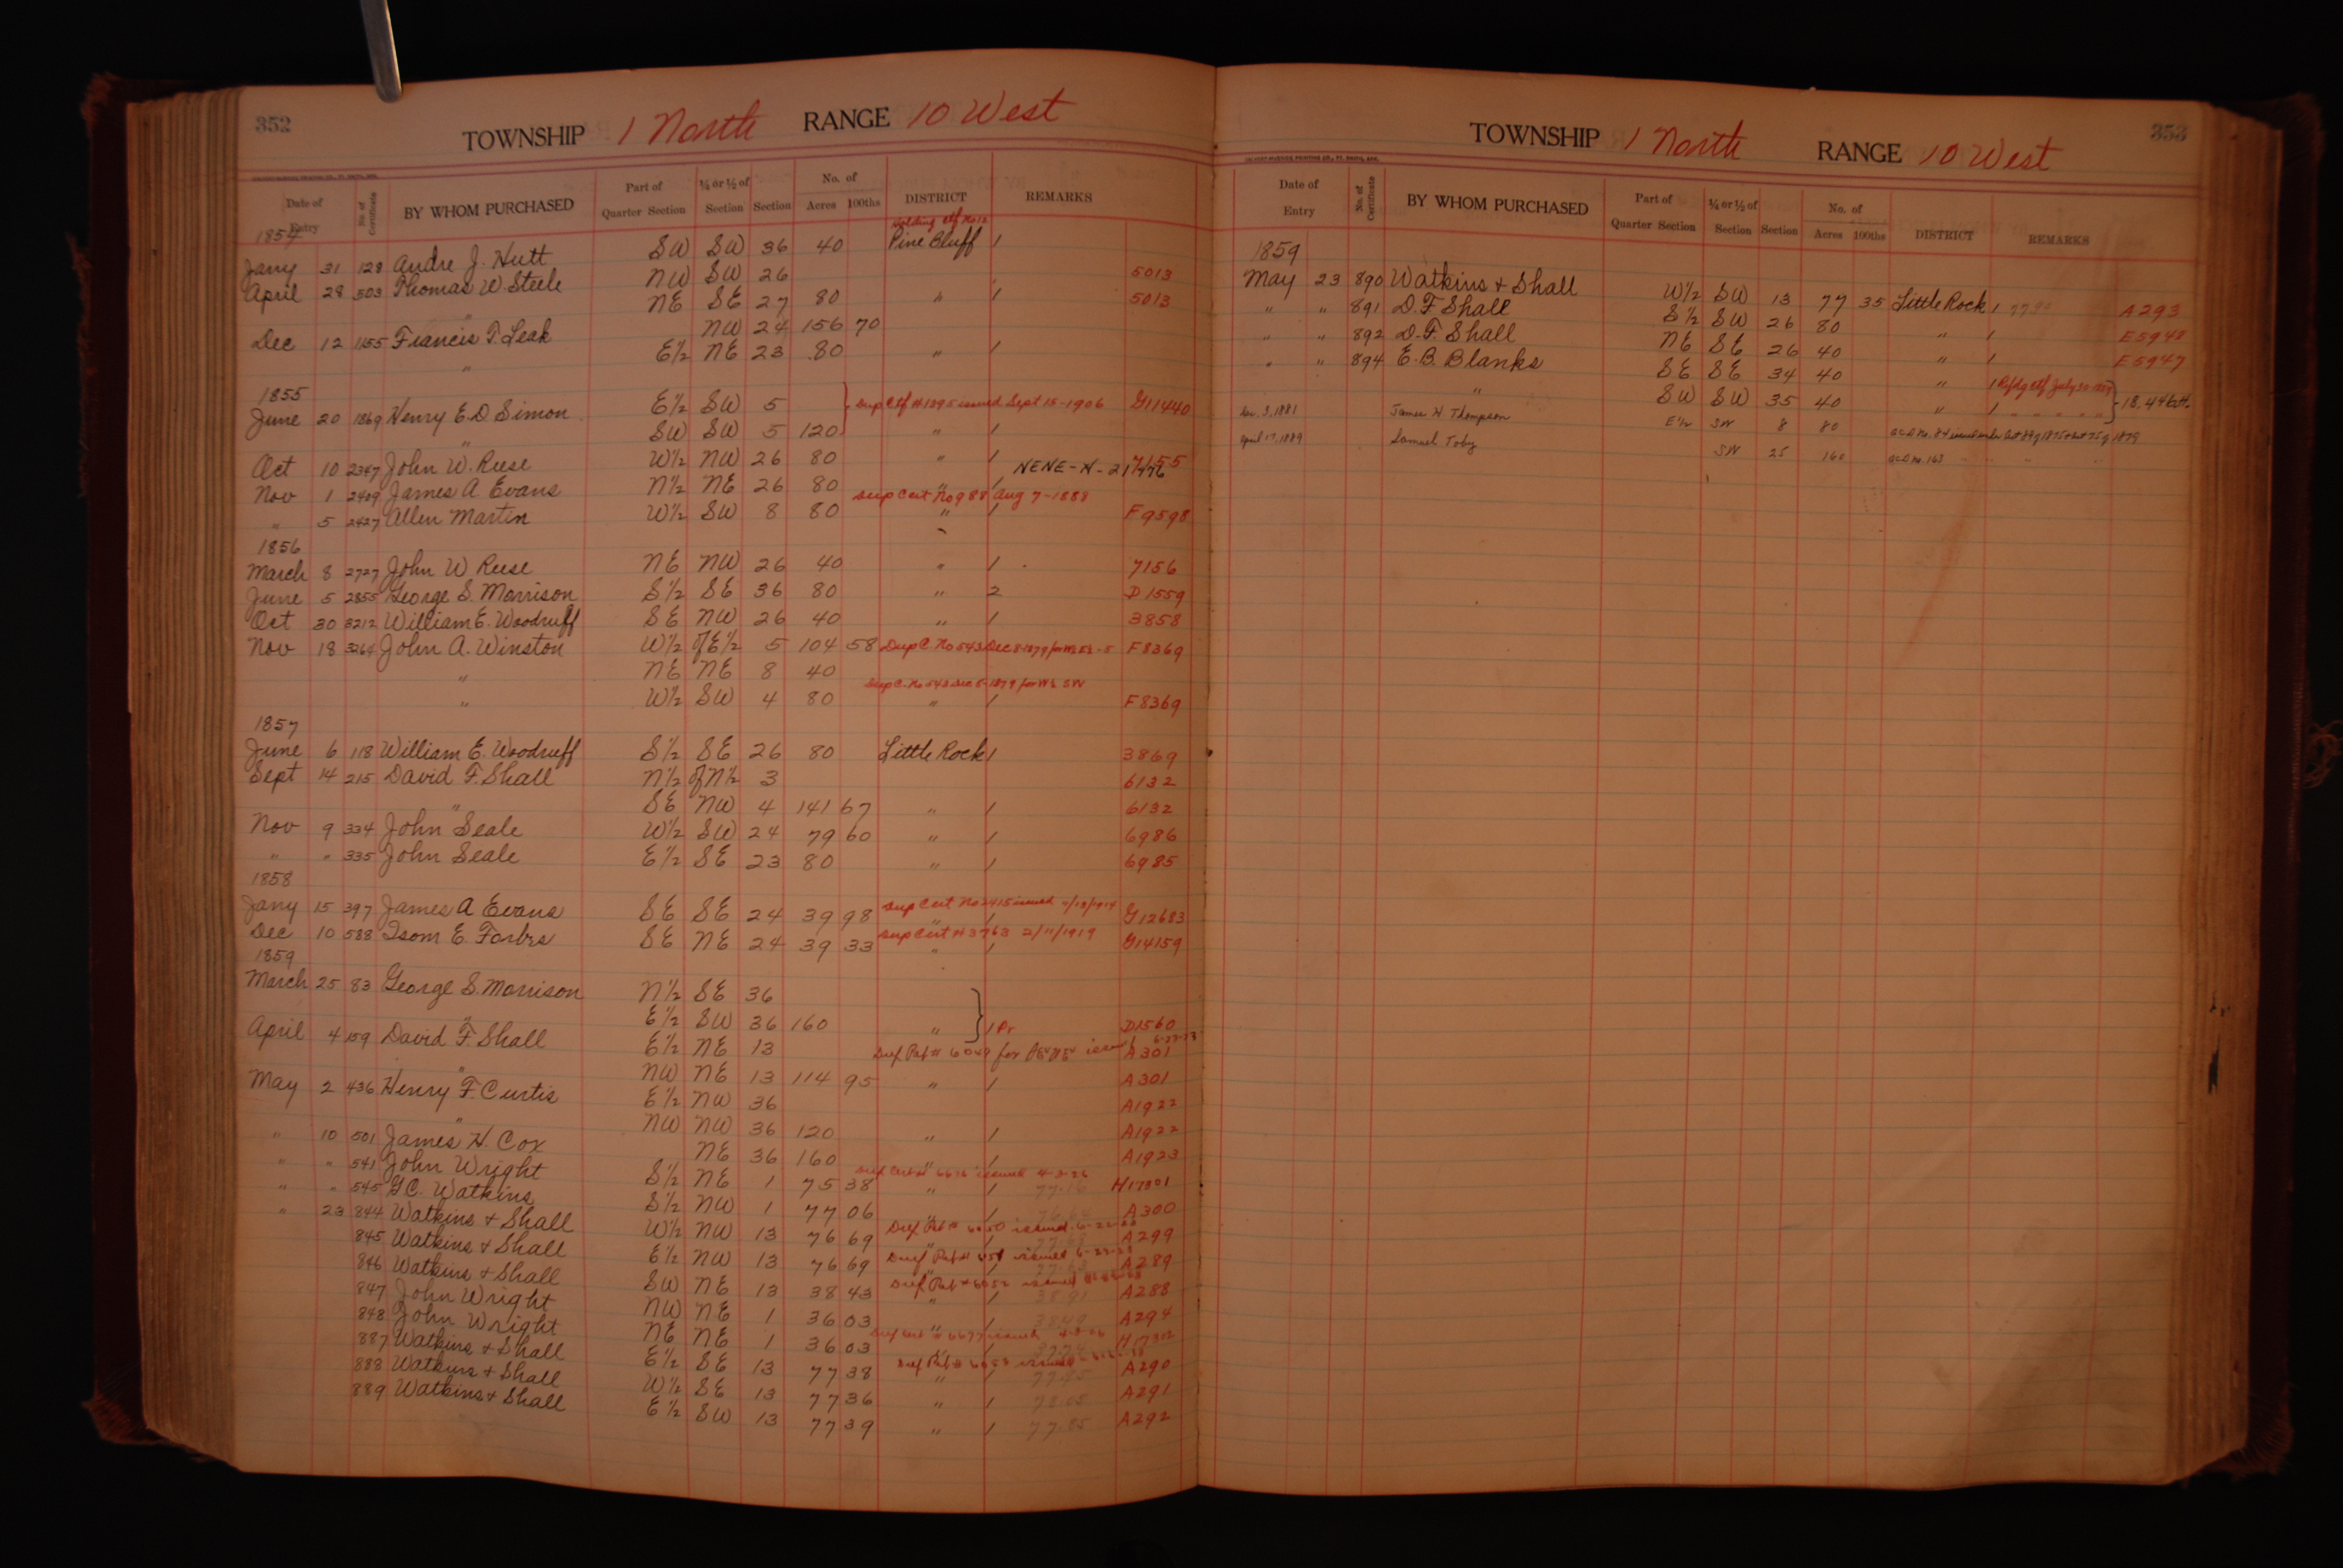 352
TOWNSHIP 1 North RANGE 10 West
Date of Entry No. of Certificate BY WHOM PURCHASED Part of Quarter Section ¼ or ½ of Section Section No. of Acres 100ths DISTRICT REMARKS
1854
Jany 31 128 Andre J. Hutt SW SW 36 40 Pine Bluff 1
April 28 503 Thomas W. Steele NW SW 26 5013
" NE SE 27 80 " 1 5013
Dec 12 1155 Francis T. Leak NW 24 156 70
" E½ NE 23 80 " 1
1855
June 20 1869 Henry E. D. Simon E½ SW 5 Dup Ctf #1395 issued Sept 15-1906 G11440
" SW SW 5 120 " 1
Oct 10 2347 John W. Reese W½ NW 26 80 " 1 7155
Nov 1 2409 James A Evans N½ NE 26 80 " 1 NENE-N-21476
" 5 2427 Allen Martin W½ SW 8 80 Dup Cert No 988 Aug 7-1888 " 1 F9598
1856
March 8 2727 John W Reese NE NW 26 40 " 1 7156
June 5 2855 George S. Morrison S½ SE 36 80 " 2 D1559
Oct 30 3212 William E. Woodruff SE NW 26 40 " 1 3858
Nov 18 3264 John A. Winston W½ of E½ 5 104 58 Dup C. No 543 Dec 8-1879 for W½ E½-5 F8369
" NE NE 8 40
" W½ SW 4 80 Dup C. No 543 Dec 8-1879 for W½ SW " 1 F8369
1857
June 6 118 William E. Woodruff S½ SE 26 80 Little Rock 1 3869
Sept 14 215 David F. Shall N½ of N½ 3 6132
" SE NW 4 141 67 " 1 6132
Nov 9 334 John Seale W½ SW 24 79 60 " 1 6986
" " 335 John Seale E½ SE 23 80 " 1 6985
1858
Jany 15 397 James A Evans SE SE 24 39 98 Dup Cert No 2415 issued " 1 G12683
Dec 10 588 Isom E. Forbes SE NE 24 39 33 Dup Cert #3763 2/11/1919 " 1 G14159
1859
March 25 83 George S. Morrison N½ SE 36
" E½ SW 36 160 " 1 Pr D1560
April 4 159 David F. Shall E½ NE 13 Dup Pat # 6049 for A301
" NW NE 13 114 95 " 1 A301
May 2 436 Henry F. Curtis E½ NW 36 A1922
" NW NW 36 120 " 1 A1922
" 10 501 James H. Cox NE 36 160 " 1 A1923
" " 541 John Wright S½ NE 1 75 38 issued 4-3-26 " 1 77.16 H17301
" " 545 G C. Watkins S½ NW 1 77 06 " 1 76.64 A300
" 23 844 Watkins & Shall W½ NW 13 76 69 Dup Pat # 6050 issued " 1 A299
845 Watkins & Shall E½ NW 13 76 69 issued " 1 A289
846 Watkins & Shall SW NE 13 38 43 Dup Pat # 6052 issued " 1 38.91 A288
847 John Wright NW NE 1 36 03 " 1 A294
848 John Wright NE NE 1 36 03 # 6677 issued " 1 H17302
887 Watkins & Shall E½ SE 13 77 38 Dup Pat # 6053 issued " 1 A290
888 Watkins & Shall W½ SE 13 77 36 " 1 78.05 A291
889 Watkins & Shall E½ SW 13 77 39 " 1 77.85 A292
353
TOWNSHIP 1 North RANGE 10 West
Date of Entry No. of Certificate BY WHOM PURCHASED Part of Quarter Section ¼ or ½ of Section Section No. of Acres 100ths DISTRICT REMARKS
1859
May 23 890 Watkins & Shall W½ SW 13 77 35 Little Rock 1 A293
" " 891 D. F. Shall S½ SW 26 80 " 1 E5948
" " 892 D. F. Shall NE SE 26 40 " 1 E5947
" " 894 E. B. Blanks SE SE 34 40 " 1
" SW SW 35 40 " 1
3, 1881 James H. Thompson E½ SW 8 80
April 17, 1889 Samuel Toby SW 25 160 No. 163